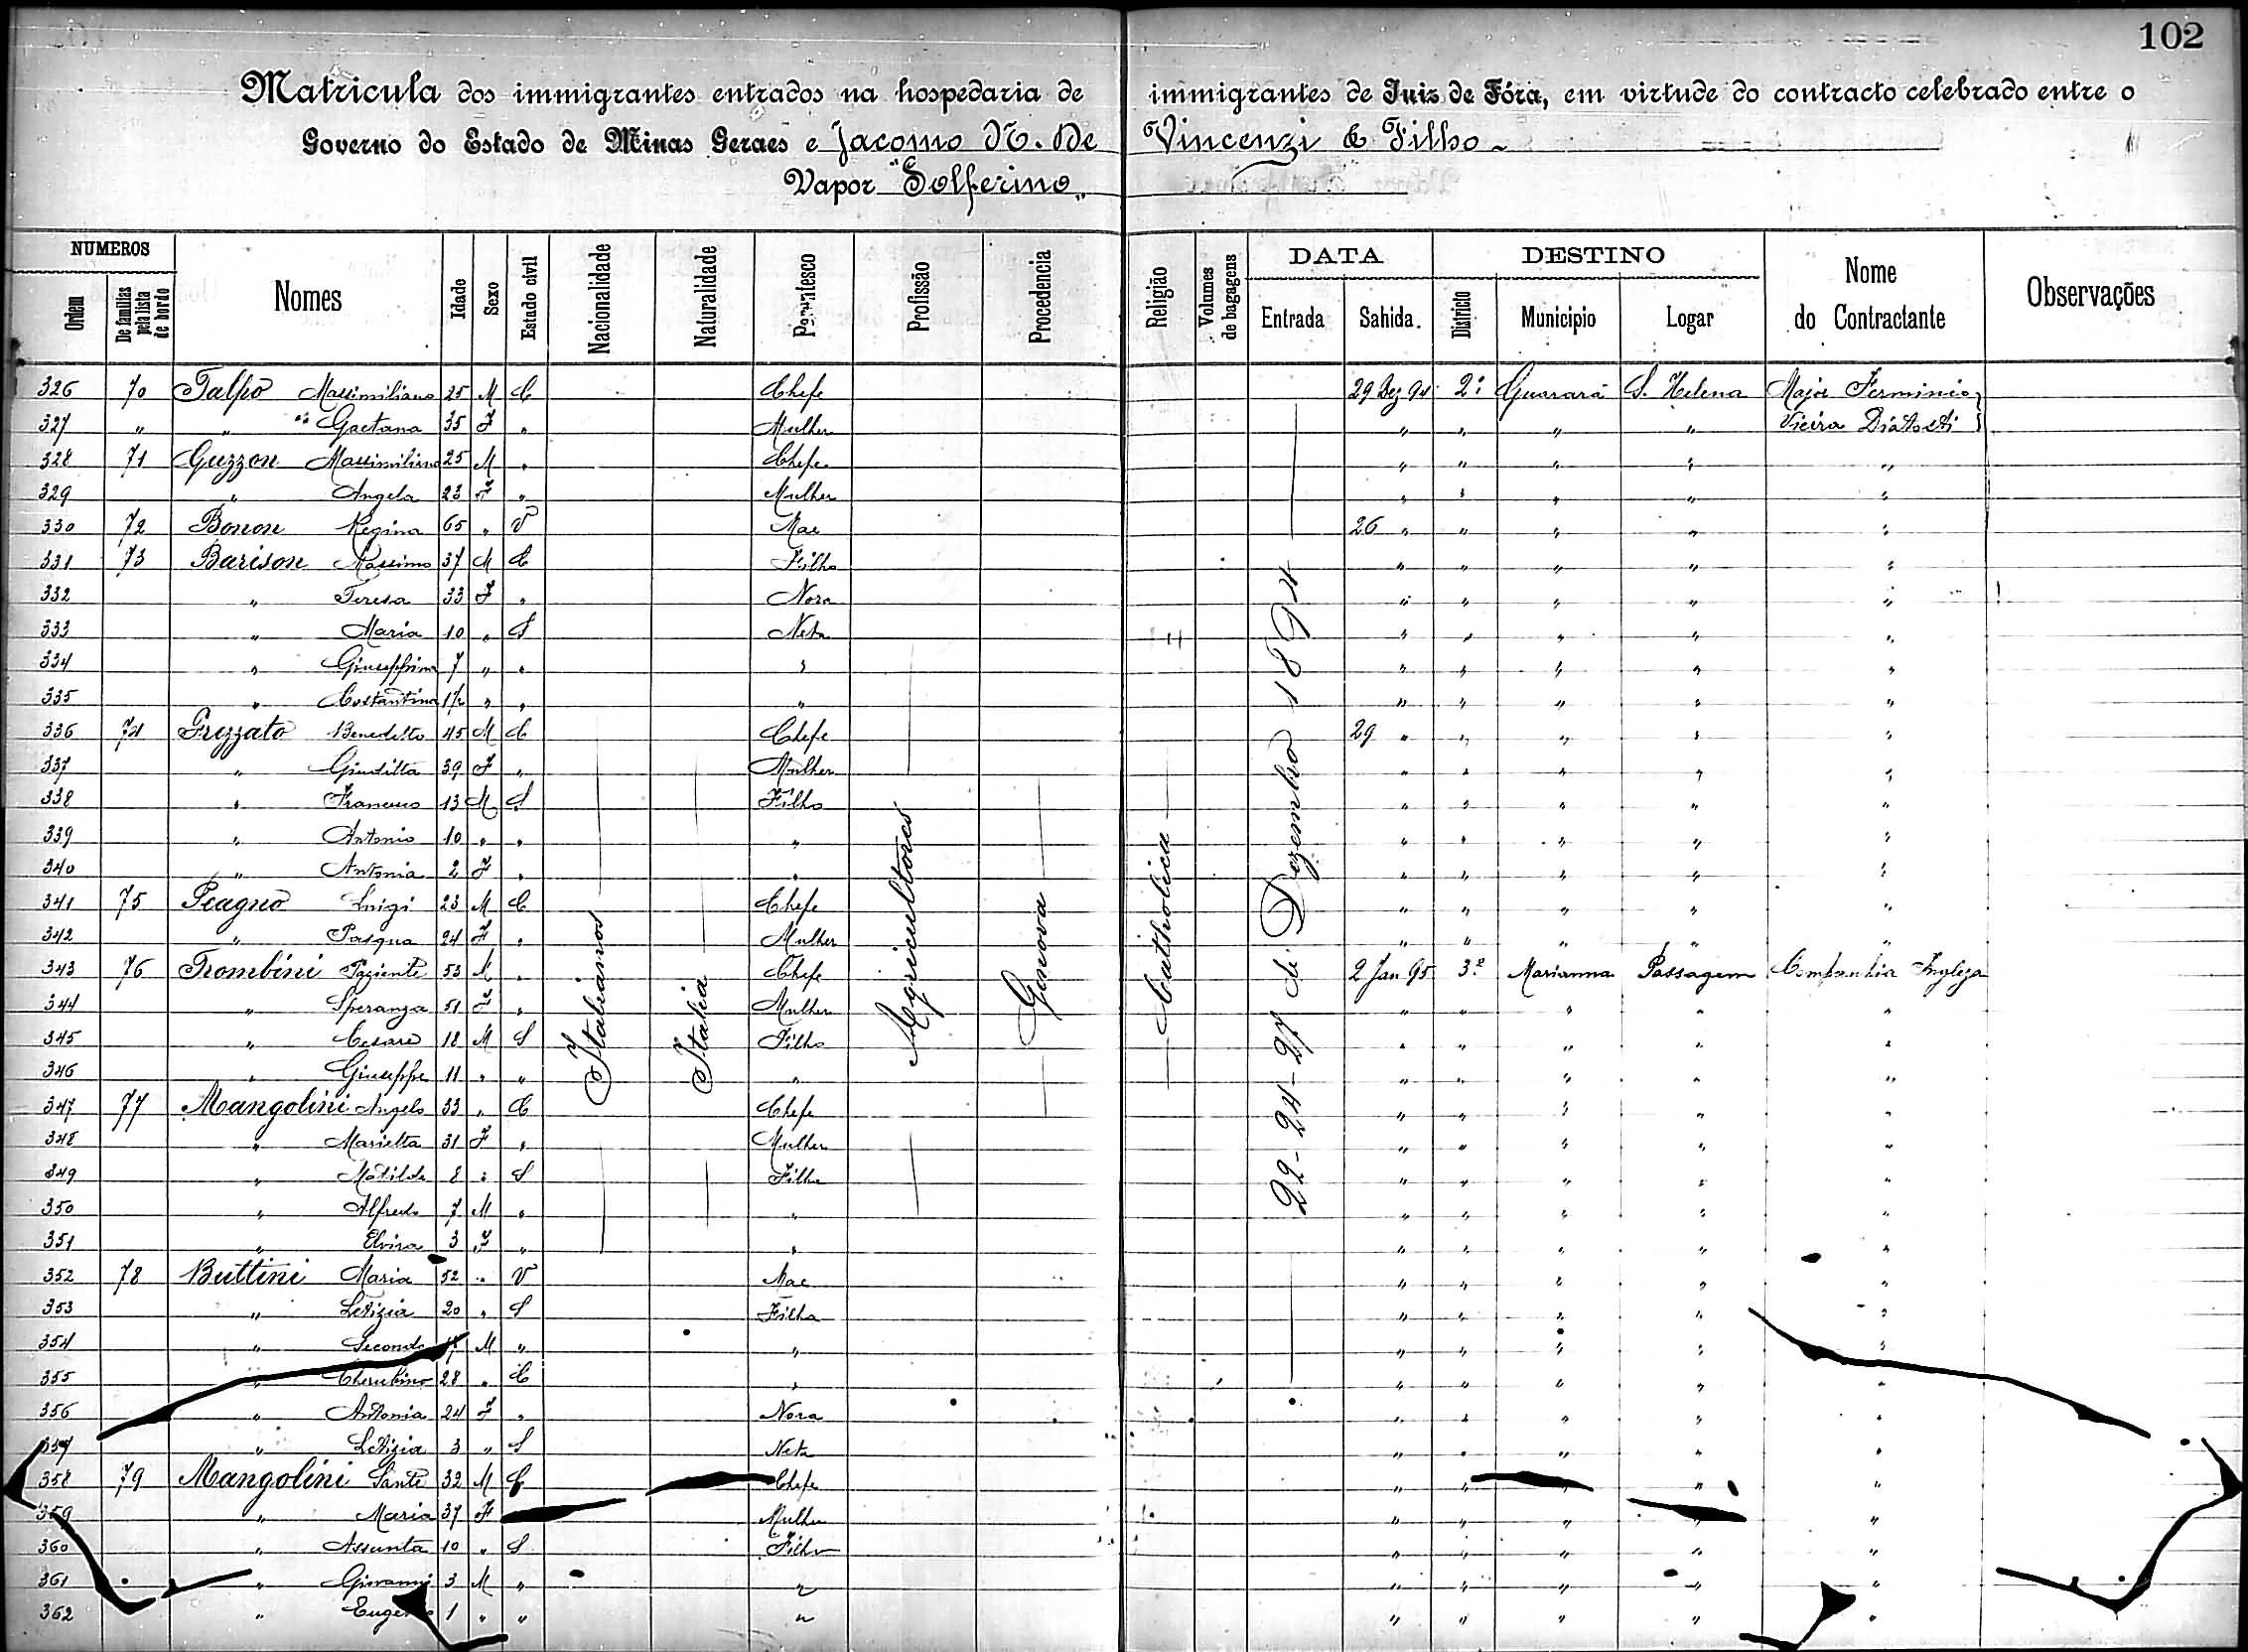 102
Matricula dos immigrantes entrados na hospedaria de immigrantes de Juiz de Fóra, em virtude do contracto celebrado entre o
Governo do Estado de Minas Geraes e Jacomo N. De Vincenzi & Filho
Vapor "Solferino"
NUMEROS DATA DESTINO
Ordem De familias pela lista de bordo Nomes Idade Sexo Estado civil Nacionalidade Naturalidade Parentesco Profissão Procedencia Religião Volumes de bagagens Entrada Sahida. Districto Municipio Logar Nome do Contractante Observações
326 70 Talpo Massimiliano 25 M C Chefe 29 Dez 94 2º Guarará S. Helena Major Ferminio
327 " " Gaetana 35 F " Mulher " " " " Vieira
328 71 Guzzon Massimiliano 25 M " Chefe " " " " "
329 " Angela 23 F " Mulher " " " " "
330 72 Bonon Regina 65 " V Mae 26 " " " " "
331 73 Barison Massimo 37 M C Filho " " " " "
332 " Teresa 33 F " Nora " " " " "
333 " Maria 10 " S Neta " " " " "
334 " Giuseppina 7 " " " " " " " "
335 " Costantina 1½ " " " " " " " "
336 74 Frezzato Benedetto 45 M C Chefe 29 " " " " "
337 " Giuditta 39 F " Mulher " " " " "
338 " Francesco 13 M S Filho " " " " "
339 " Antonio 10 " " " " " " " "
340 " Antonia 2 F " " " " " " "
341 75 Piagno Luigi 23 M C Chefe " " " " "
342 " Pasqua 24 F " Mulher " " " " "
343 76 Trombini Paziente 53 M " Chefe 2 Jan 95 3º Marianna Passagem Companhia Ingleza
344 " Speranza 51 F " Mulher " " " " "
345 " Cesare 18 M S Filho " " " " "
346 " Giuseppe 11 " " " " " " " "
347 77 Mangolini Angelo 33 " C Chefe " " " " "
348 " Marietta 31 F " Mulher " " " " "
349 " Matilde 8 " S Filha " " " " "
350 " Alfredo 7 M " " " " " " "
351 " Elvira 3 F " " " " " " "
352 78 Buttini Maria 52 " V Mae " " " " "
353 " Letizia 20 " S Filha " " " " "
354 " Secondo M " " " " " " "
355 " Cherubino 28 " C " " " " " "
356 " Antonia 24 F " Nora " " " " "
357 " Letizia 3 " S Neta " " " " "
358 79 Mangolini Sante 32 M C Chefe " " " " "
359 " Maria 37 F Mulher " " " " "
360 " Assunta 10 " S Filha " " " " "
361 " Giovanni 3 M " " " " " " "
362 " 1 " " " " " " " "
Italianos
Italia
Agricultores
Genova
Catholica
22-24-27 de Dezembro 1894